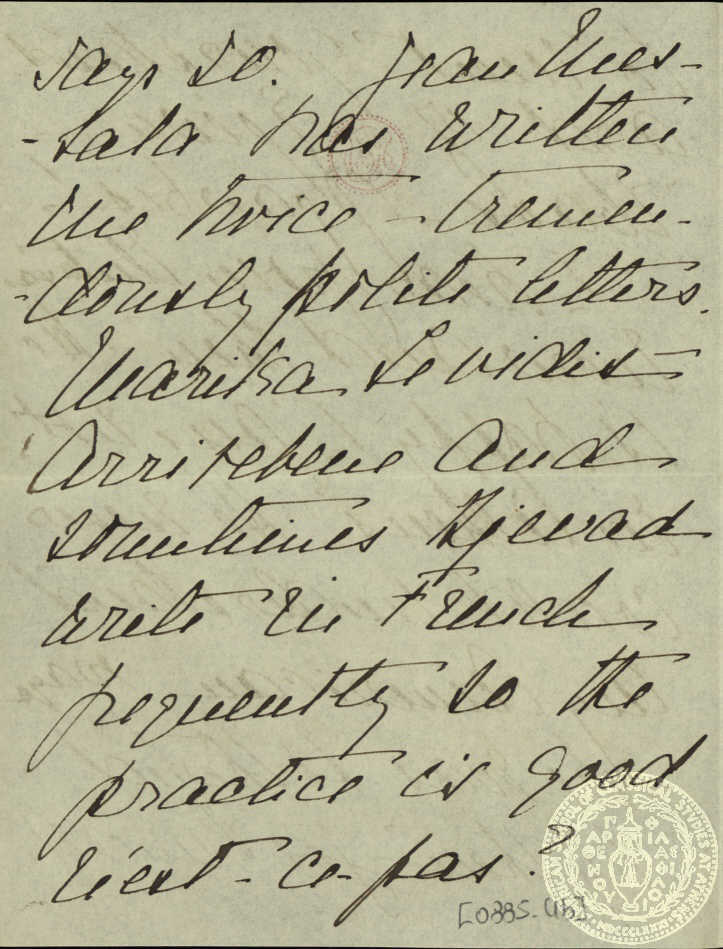 says so. Jean Mes-
-sala has written
me twice - tremen-
-dously polite letters.
Marika Levidis-
Arrivebene and
sometimes Djevad
write in French
frequently so the
practice is good
n'est-ce-pas?
[0335-(15)]